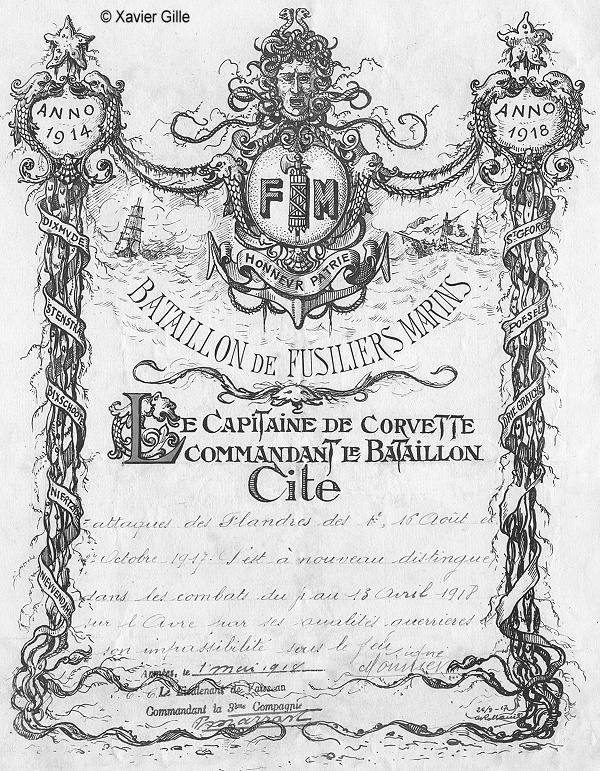 © Xavier Gille
ANNO
1914
ANNO
1918
F M
HONNEVR PATRIE
DIXMVDE
STENSTR
DIXSCHOO
NIEWENDA
ST GEORGE
POESELE
DRIE GRACHTEN
BATAILLON DE FUSILIERS MARINS
LE CAPITAINE DE CORVETTE
COMMANDANT LE BATAILLON
Cite
attaques des Flandres des 1er, 16 Août et
Octobre 1917. S'est à nouveau distingué
dans les combats du au 13 Avril 1918
sur l'Avre par ses qualités guerrières &
son impassibilité sous le feu
Signé
Armées, le 1 mai 1918
Le Lieutenant de Vaisseau
Commandant la Compagnie